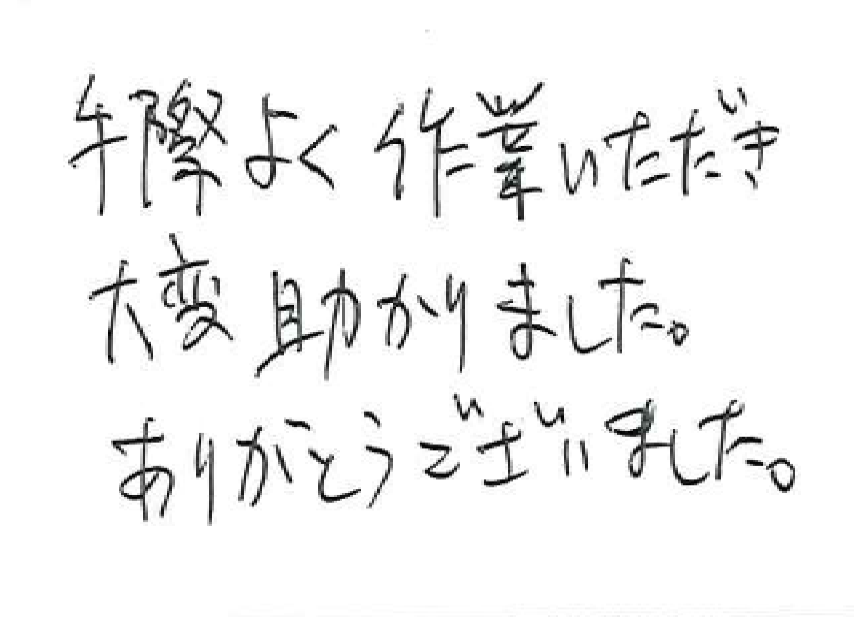 手際よく作業いただき
大変助かりました。
ありがとうございました。